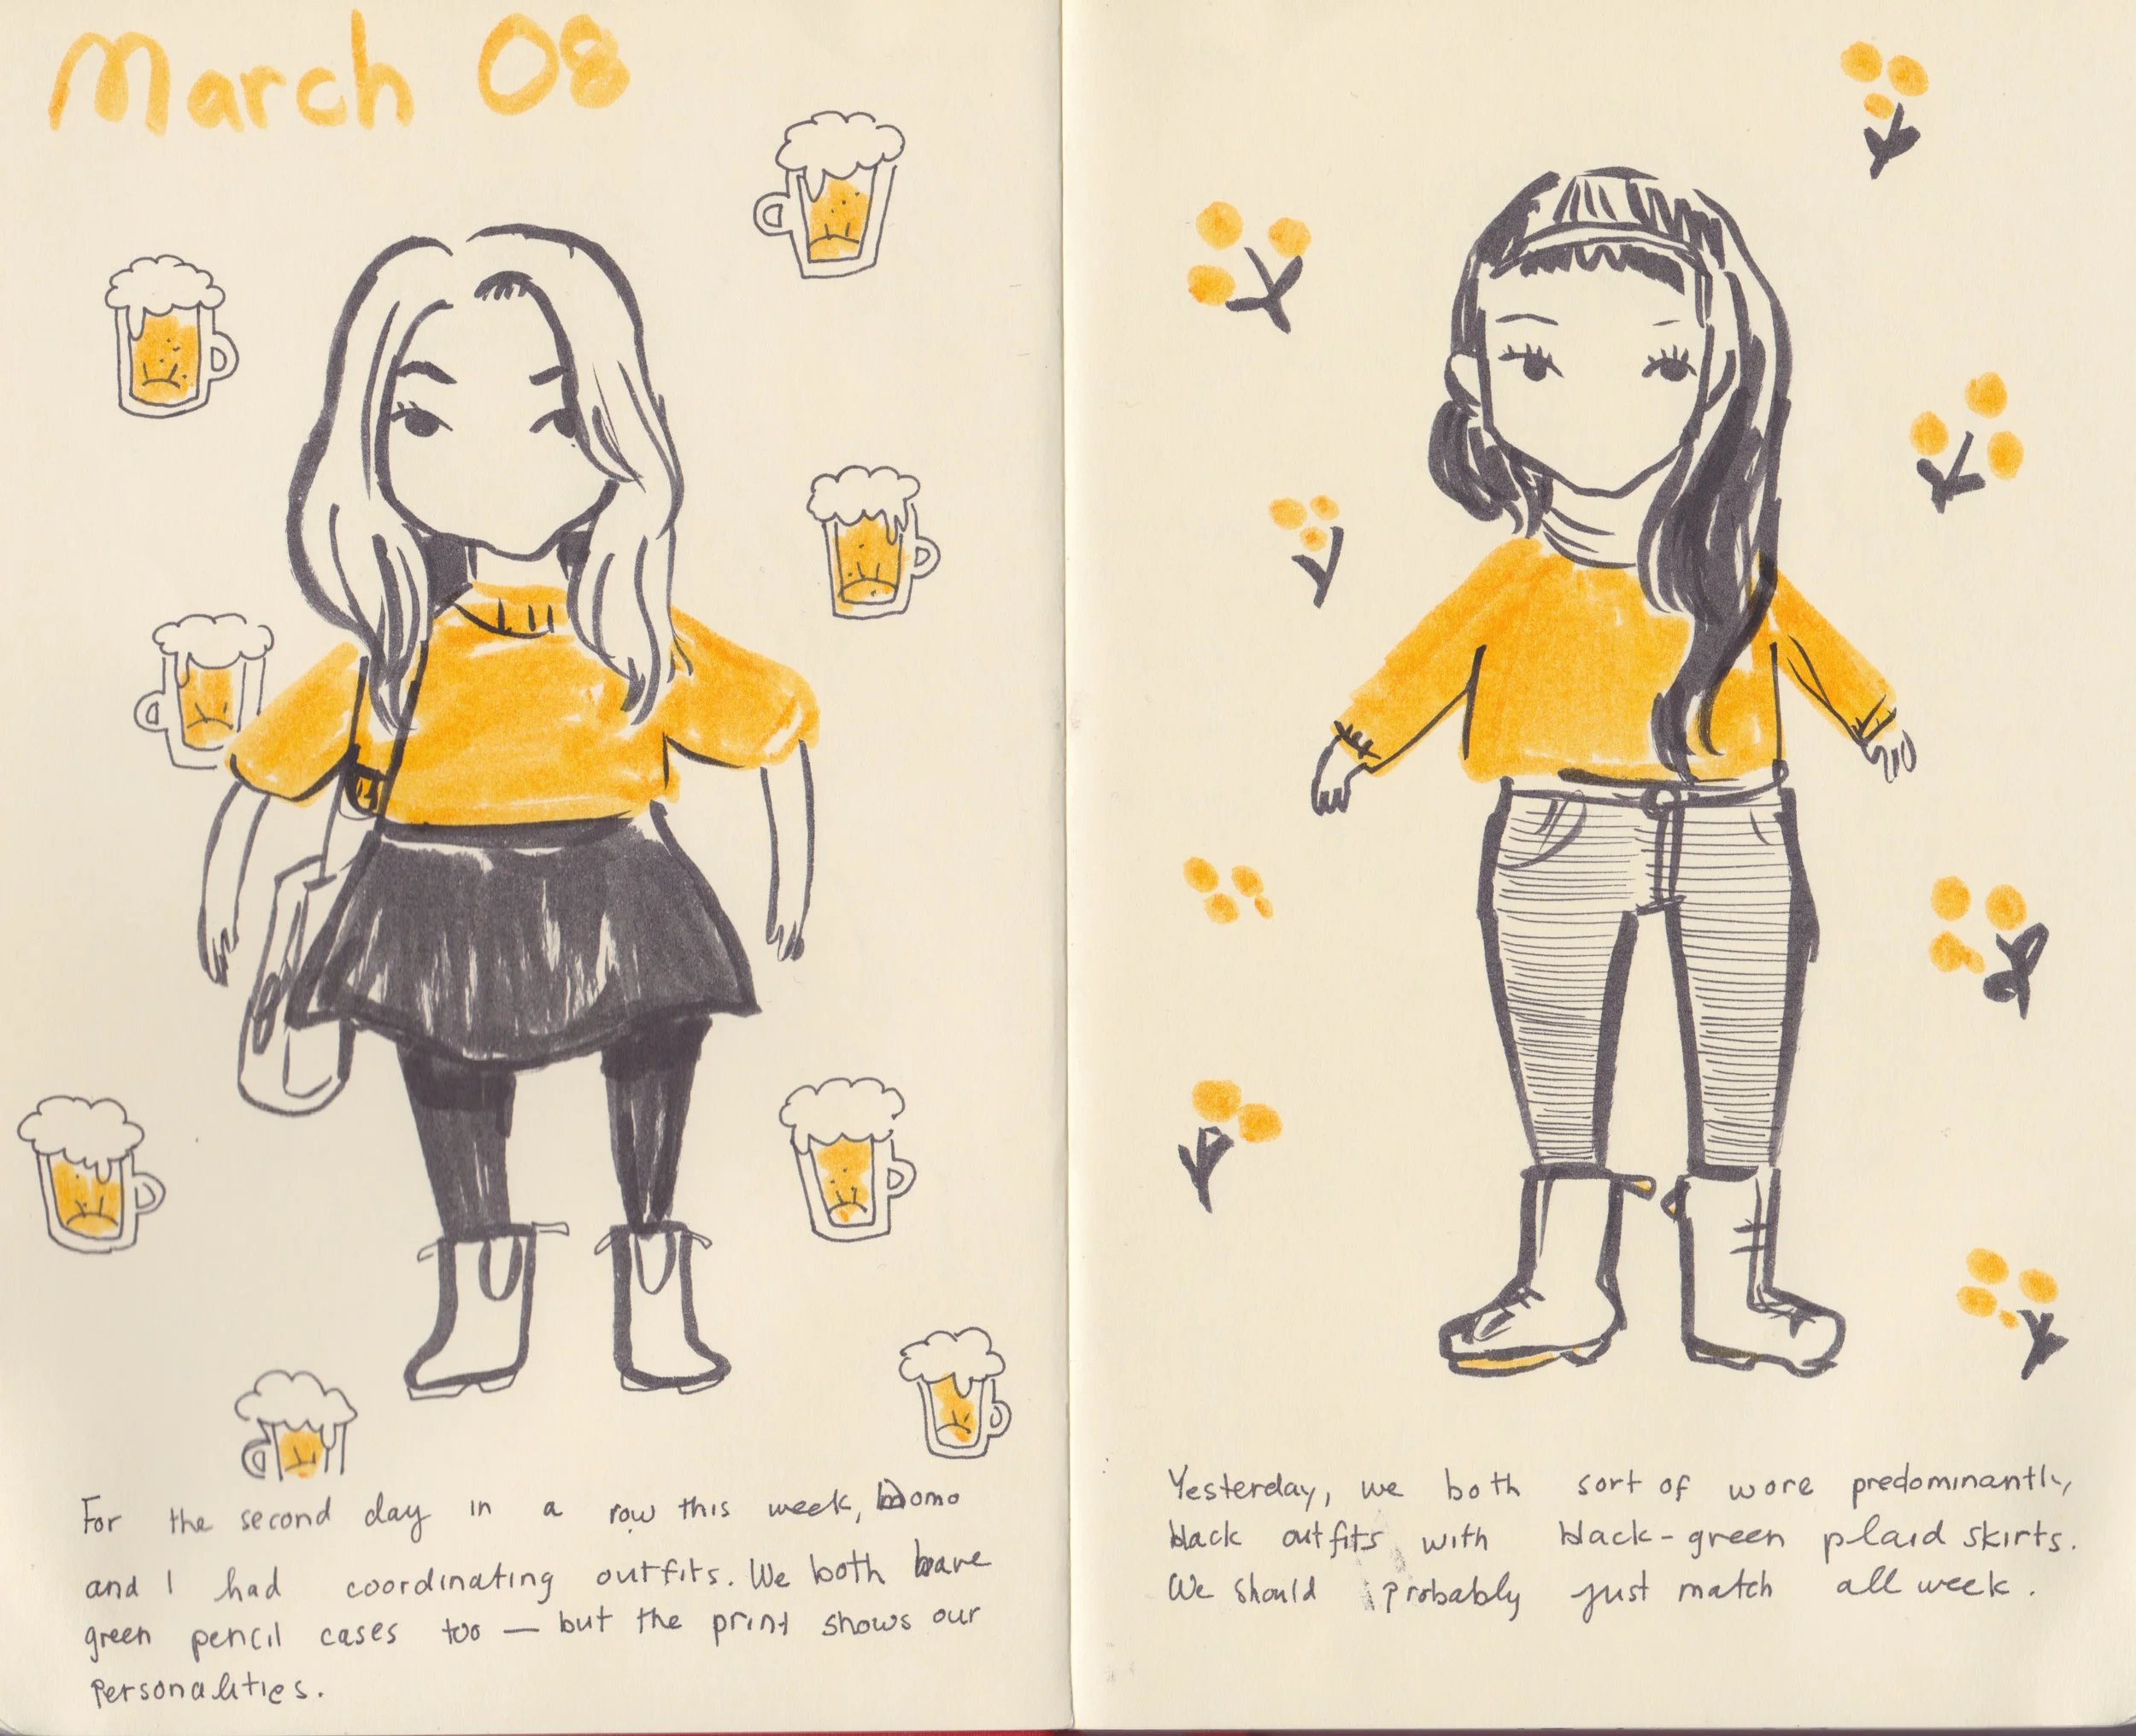 March 08
For the second day in a row this week, Momo
and I had coordinating outfits. We both have
green pencil cases too — but the print shows our
personalities.
Yesterday, we both sort of wore predominantly
black outfits with black-green plaid skirts.
We should probably just match all week.